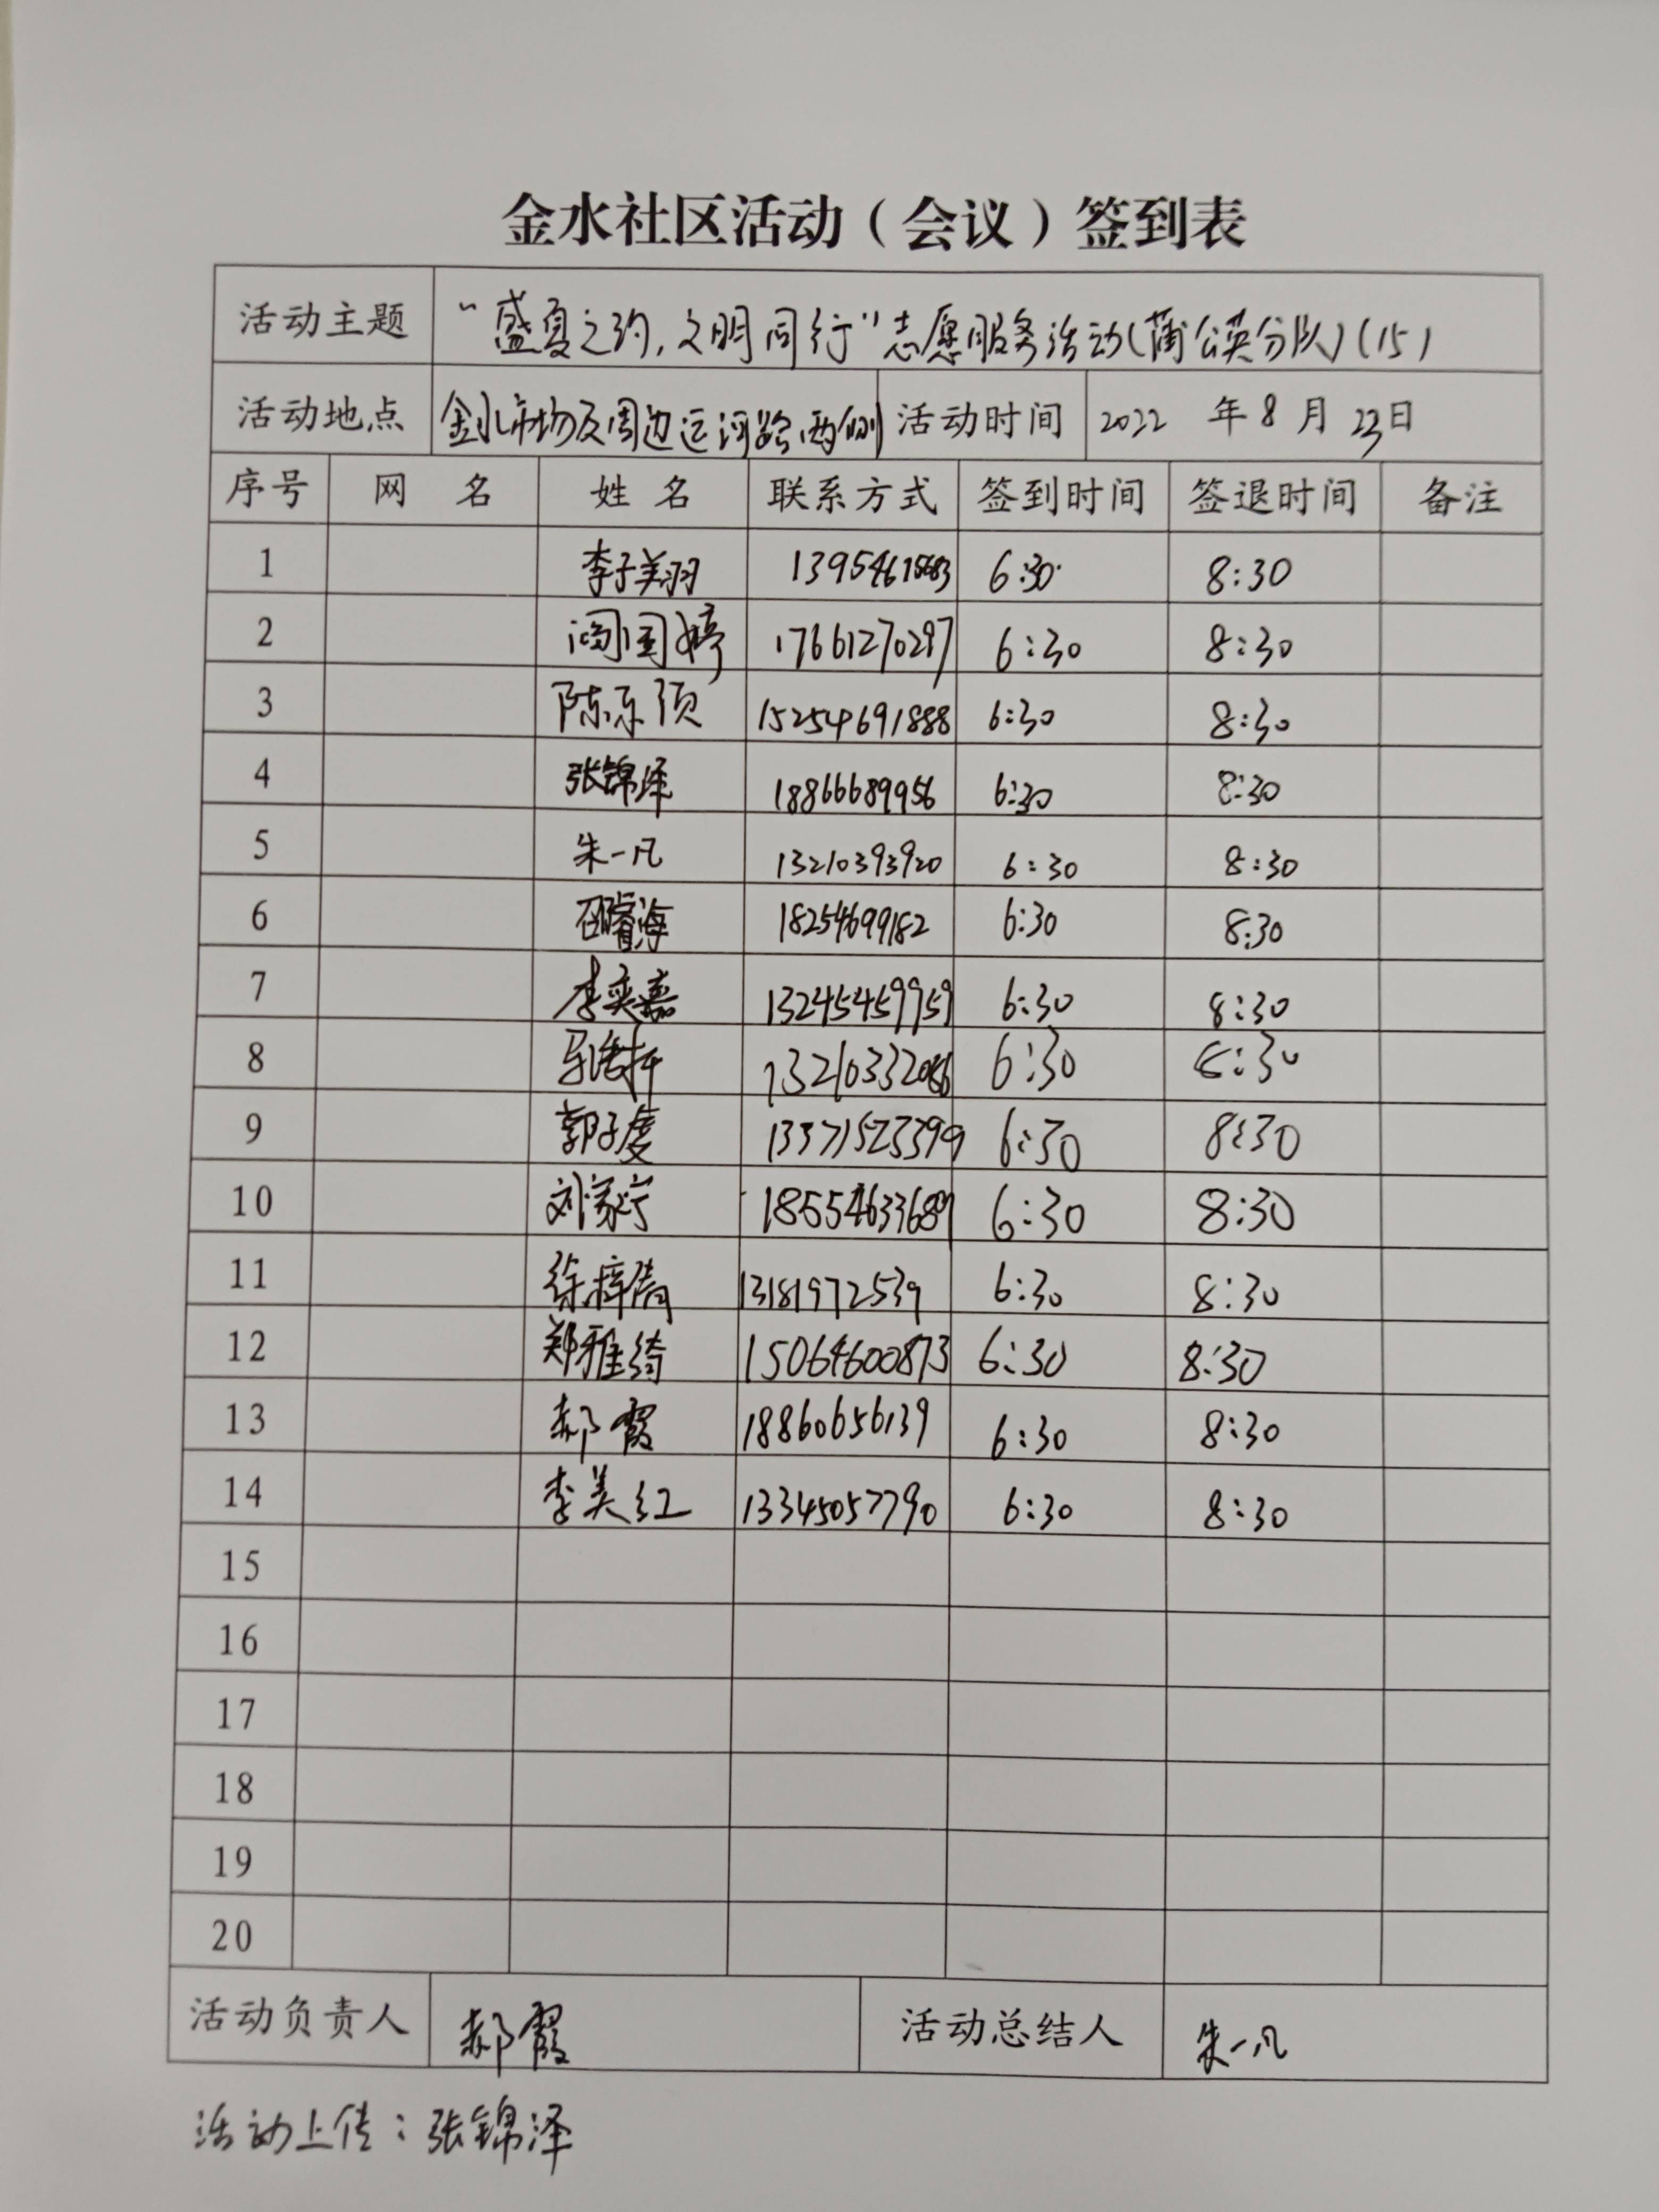 金水社区活动（会议）签到表
活动主题 “盛夏之约，文明同行”志愿服务活动（蒲公英分队）（15）
活动地点 金水市场及周边运河路两侧 活动时间 2022 年 8 月 23 日
序号 网 名 姓 名 联系方式 签到时间 签退时间 备注
1 李子美羽 6:30 8:30
2 阎国婷 17661270297 6:30 8:30
3 陈乐颀 15254691888 6:30 8:30
4 张锦泽 18866689956 6:30 8:30
5 朱一凡 13210393920 6:30 8:30
6 邵睿海 18254699182 6:30 8:30
7 李奕嘉 13245459959 6:30 8:30
8 6:30 8:30
9 郭子虔 13371523399 6:30 8:30
10 刘家宁 6:30 8:30
11 徐梓倩 13181972539 6:30 8:30
12 郑雅绮 15064600873 6:30 8:30
13 郝霞 18860656139 6:30 8:30
14 李美红 13345057790 6:30 8:30
15
16
17
18
19
20
活动负责人 郝霞 活动总结人 朱一凡
活动上传：张锦泽